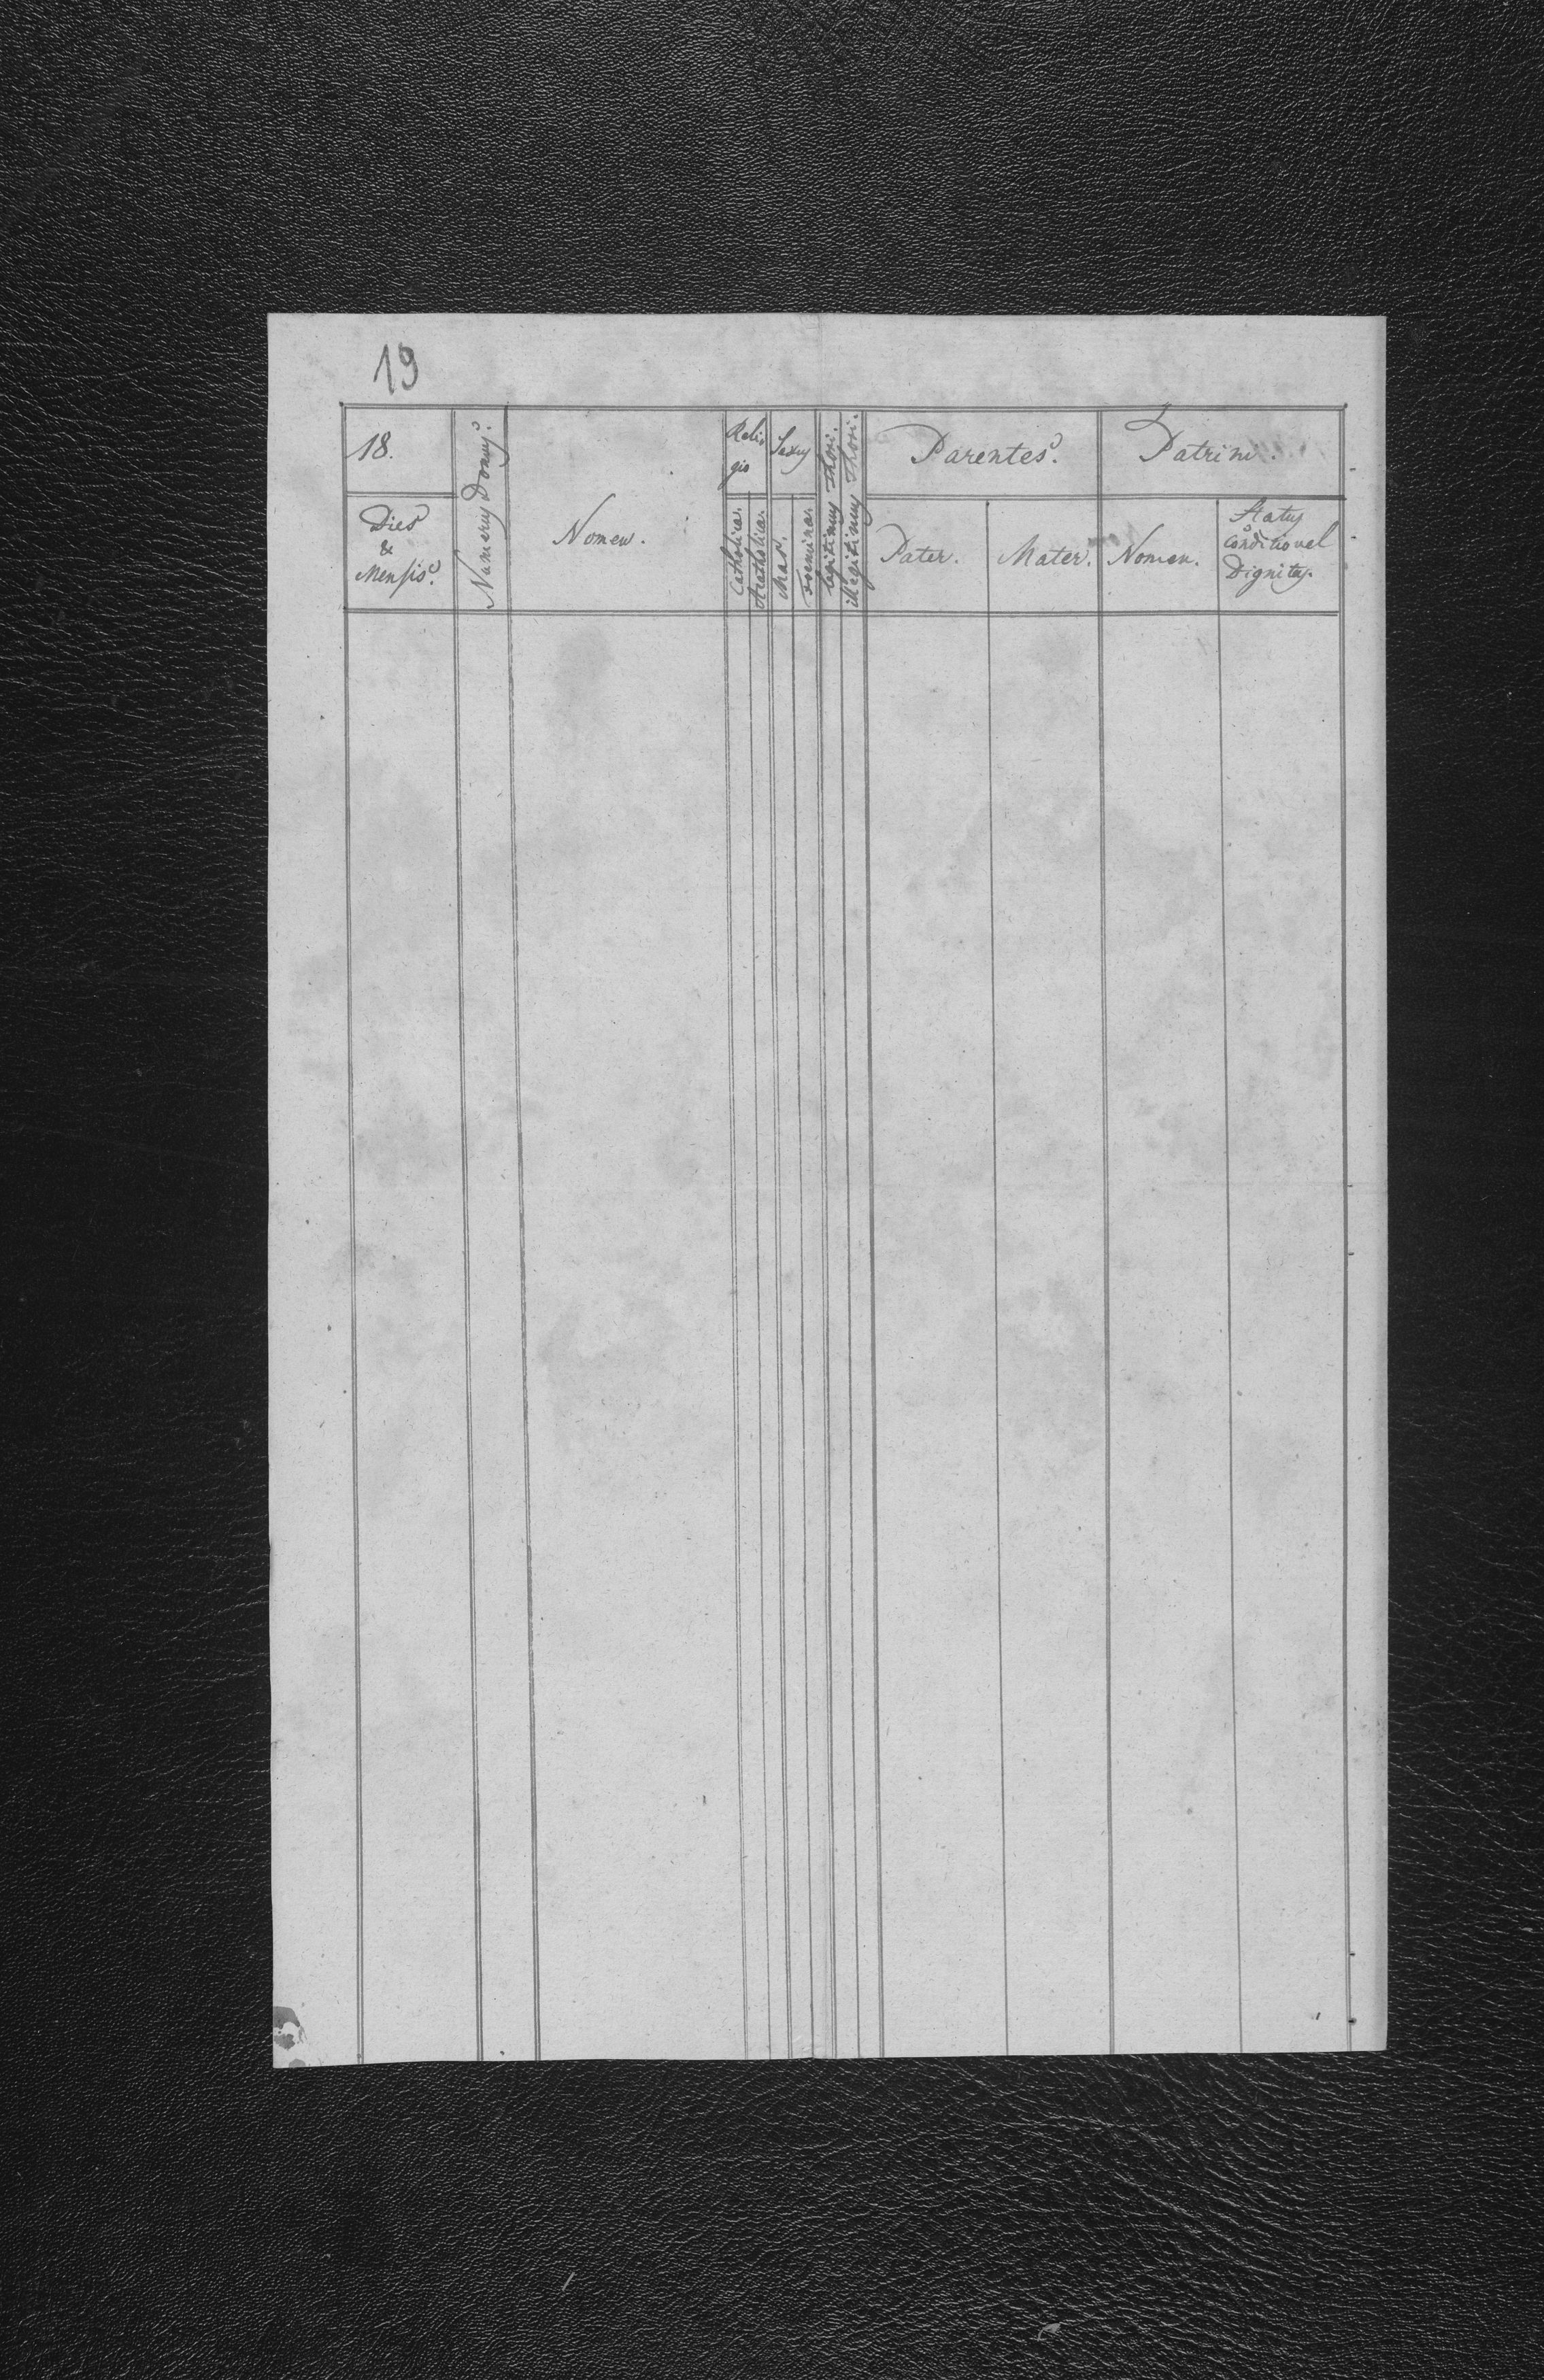 19
18.
Dies
&
Mensis.
Numerus Domus.
Nomen.
Reli
gio
Catholica.
Acatholica.
Sexus
Mas.
Foemina.
legitimus Thori.
illegitimus Thori.
Parentes.
Pater.
Mater.
Patrini.
Nomen.
Status
Conditio vel
Dignitas.